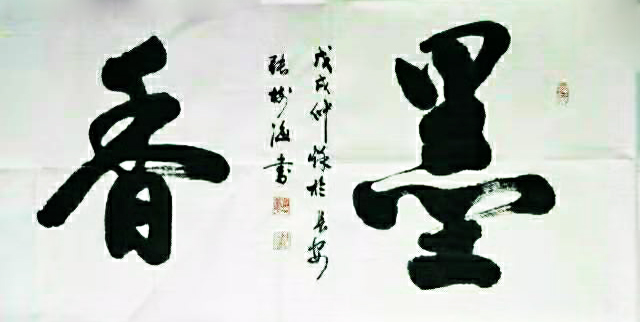 墨香
戊戌仲秋於長安
張樹海書